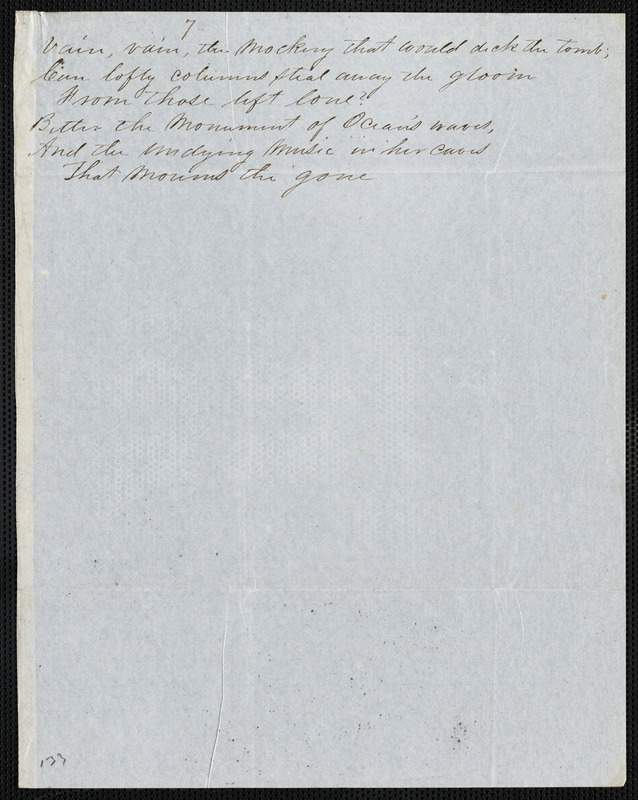 7
Vain, vain, the mockery that would deck the tomb;
Can lofty columns steal away the gloom
From those left lone?
Better the Monument of Ocean's waves,
And the undying Music in her caves
That Mourns the gone
133